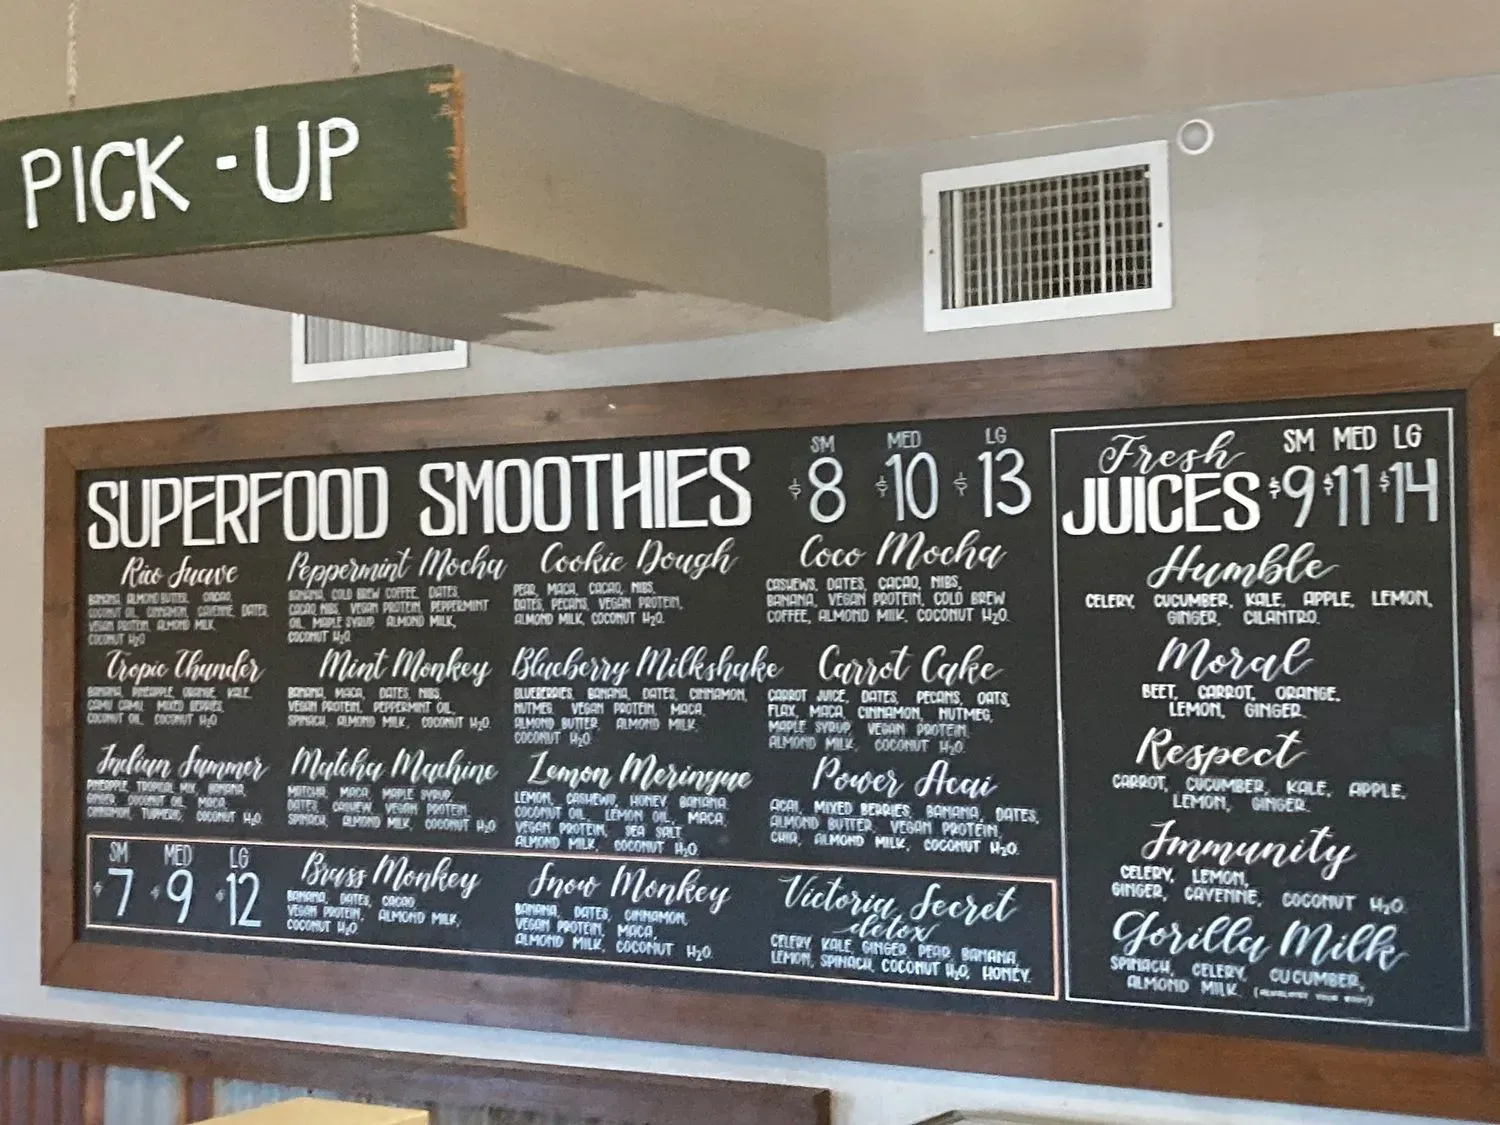 PICK-UP
SUPERFOOD SMOOTHIES
SM MED LG
$8 $10 $13
Rico Suave
BANANA, ALMOND BUTTER, CACAO,
COCONUT OIL, CINNAMON, CAYENNE, DATES,
VEGAN PROTEIN, ALMOND MILK,
COCONUT H2O
Peppermint Mocha
BANANA, COLD BREW COFFEE, DATES,
CACAO NIBS, VEGAN PROTEIN, PEPPERMINT
OIL, MAPLE SYRUP, ALMOND MILK,
COCONUT H2O.
Cookie Dough
PEAR, MACA, CACAO, NIBS,
DATES, PECANS, VEGAN PROTEIN,
ALMOND MILK, COCONUT H2O.
Coco Mocha
CASHEWS, DATES, CACAO, NIBS,
BANANA, VEGAN PROTEIN, COLD BREW
COFFEE, ALMOND MILK, COCONUT H2O.
Tropic Thunder
BANANA, PINEAPPLE, ORANGE, KALE,
CAMU CAMU, MIXED BERRIES,
COCONUT OIL, COCONUT H2O
Mint Monkey
BANANA, MACA, DATES, NIBS,
VEGAN PROTEIN, PEPPERMINT OIL,
SPINACH, ALMOND MILK, COCONUT H2O.
Blueberry Milkshake
BLUEBERRIES, BANANA, DATES, CINNAMON,
NUTMEG, VEGAN PROTEIN, MACA,
ALMOND BUTTER, ALMOND MILK,
COCONUT H2O.
Carrot Cake
CARROT JUICE, DATES, PECANS, OATS,
FLAX, MACA, CINNAMON, NUTMEG,
MAPLE SYRUP, VEGAN PROTEIN,
ALMOND MILK, COCONUT H2O.
Indian Summer
PINEAPPLE, TROPICAL MIX, BANANA,
GINGER, COCONUT OIL, MACA,
CINNAMON, TUMERIC, COCONUT H2O.
Matcha Machine
MATCHA, MACA, MAPLE SYRUP,
DATES, CASHEW, VEGAN PROTEIN,
SPINACH, ALMOND MILK, COCONUT H2O.
Lemon Meringue
LEMON, CASHEWS, HONEY, BANANA,
COCONUT OIL, LEMON OIL, MACA,
VEGAN PROTEIN, SEA SALT,
ALMOND MILK, COCONUT H2O.
Power Acai
ACAI, MIXED BERRIES, BANANA, DATES,
ALMOND BUTTER, VEGAN PROTEIN,
CHIA, ALMOND MILK, COCONUT H2O.
SM MED LG
$7 $9 $12
Brass Monkey
BANANA, DATES, CACAO,
VEGAN PROTEIN, ALMOND MILK,
COCONUT H2O
Snow Monkey
BANANA, DATES, CINNAMON,
VEGAN PROTEIN, MACA,
ALMOND MILK, COCONUT H2O.
Victoria Secret
detox
CELERY, KALE, GINGER, PEAR, BANANA,
LEMON, SPINACH, COCONUT H2O, HONEY.
Fresh
JUICES
SM MED LG
$9 $11 $14
Humble
CELERY, CUCUMBER, KALE, APPLE, LEMON,
GINGER, CILANTRO.
Moral
BEET, CARROT, ORANGE,
LEMON, GINGER.
Respect
CARROT, CUCUMBER, KALE, APPLE,
LEMON, GINGER.
Immunity
CELERY, LEMON,
GINGER, CAYENNE, COCONUT H2O.
Gorilla Milk
SPINACH, CELERY, CUCUMBER,
ALMOND MILK. (ALKALIZES YOUR BODY)